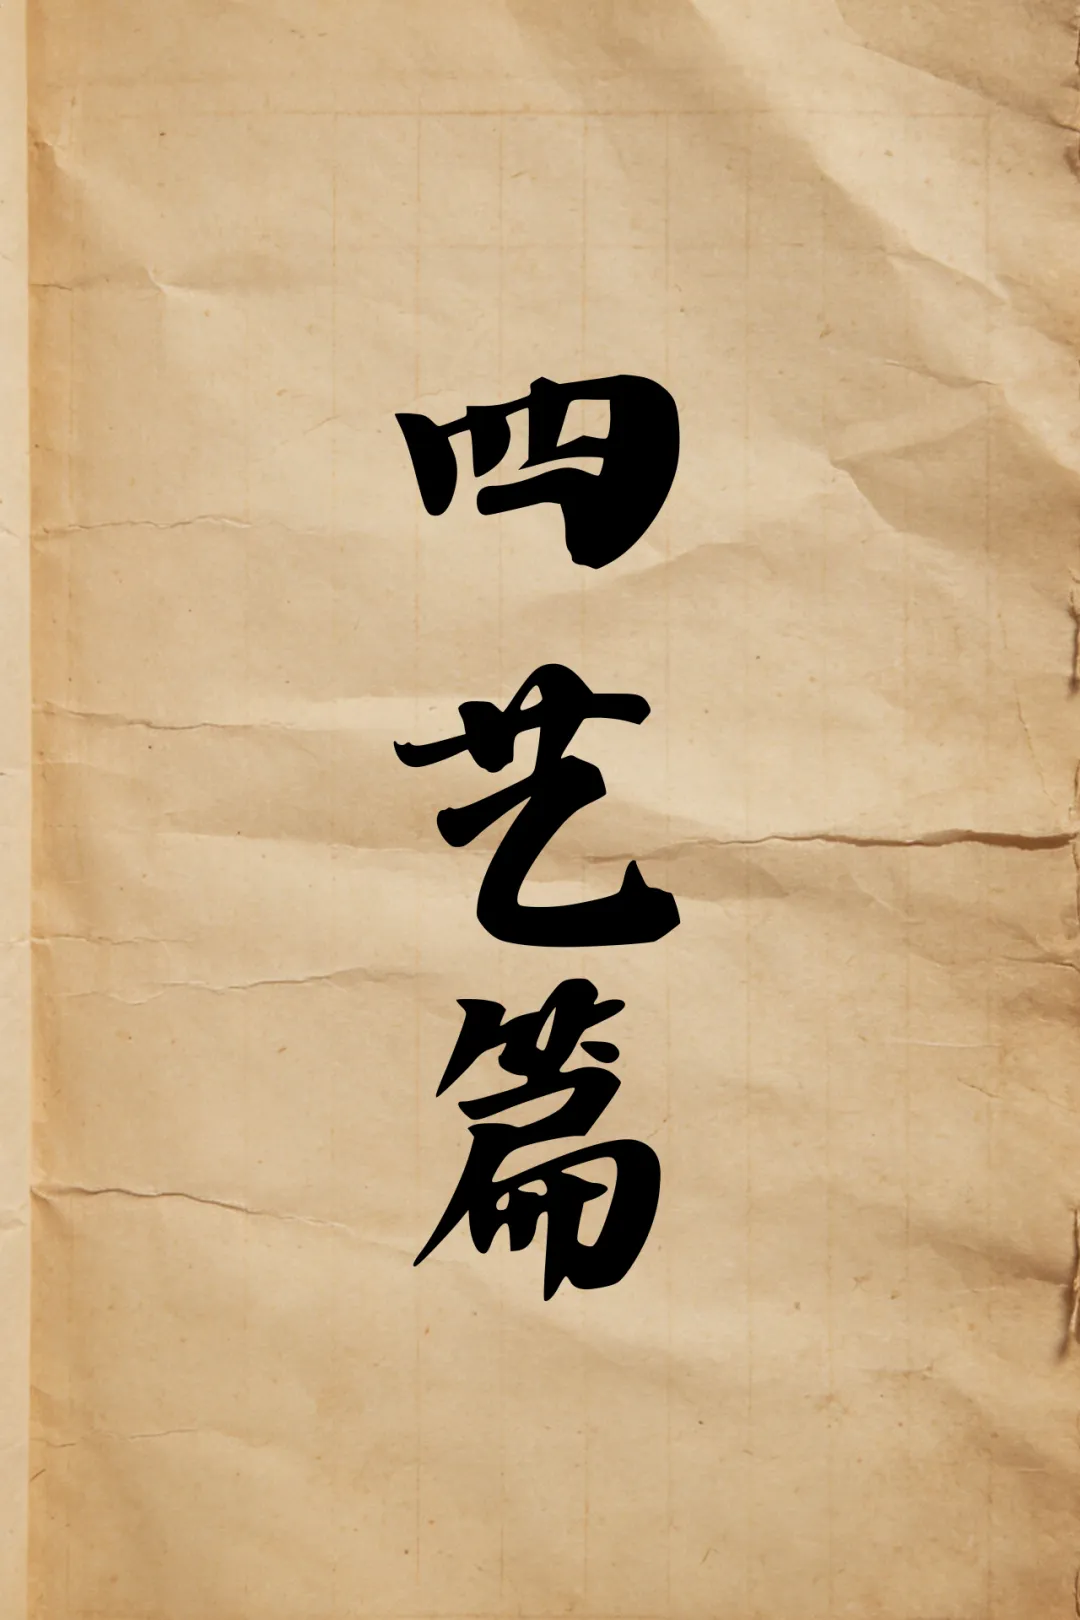 四艺篇